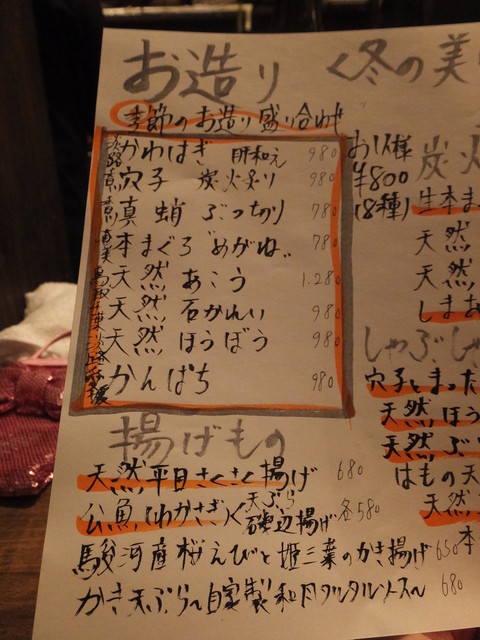 お造り
季節のお造り盛り合わせ
お1人様
¥800
(8種)
淡路 かわはぎ 肝和え 980
穴子 炭火炙り 980
真蛸 ぶっちり 780
奄美 本まぐろ"めがね" 780
鳥取 天然 あこう 1.280
天然 石かれい 980
天然 ほうぼう 980
かんぱち 980
揚げもの
天然平目さくさく揚げ 680
公魚(わかさぎ)天ぷら 磯辺揚げ 各580
駿河産桜えびと姫三葉のかき揚げ 650
かき天ぷら〜自家製和風タルタルソース〜 680
〈冬の美
炭火
生本ま
天然
天然
しまあ
しゃぶしゃ
穴子とまった
天然ほう
天然ぶ
はもの天
天然
本